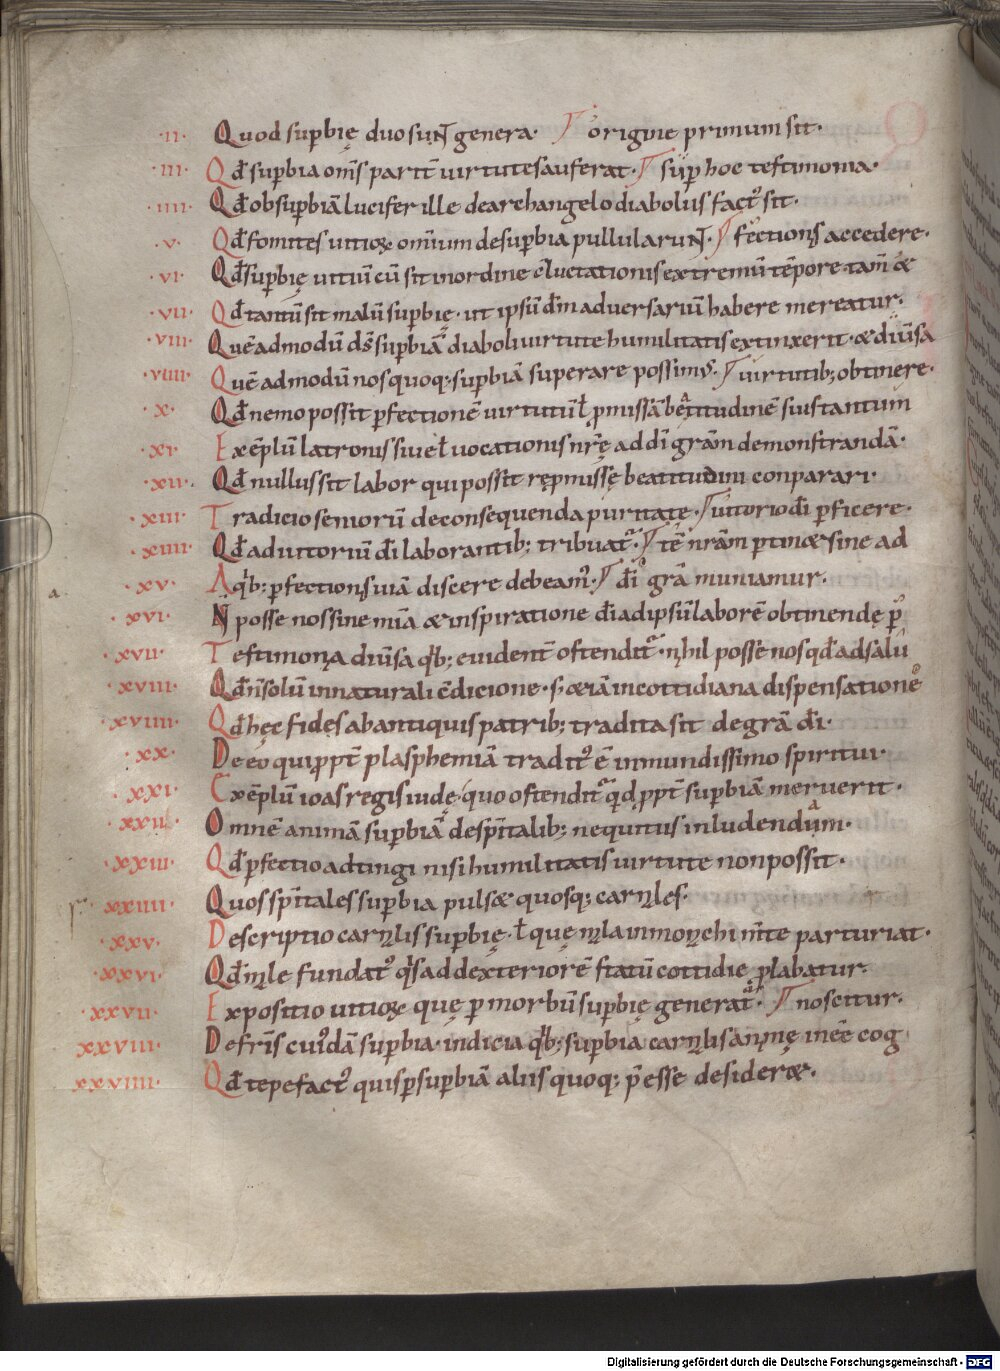 ·II· Quod supbię duo suNt genera· origine primum sit·
·III· Qđ supbia oms̄ parit̄ uirtutes auferat· sup hoc testimonia·
·IIII· Qđ ob supbiā lucifer ille de archangelo diabolus fact᾽ sit·
·V· Qđ fomites uitioꝝ omīum de supbia pullularuNt· fectionis accedere·
·VI· Qđ supbię uitiū cū sit in ordine cłuctationis extremū tēpore tam̄ &
·VII· Qđ tantū sit malū supbię· ut ipsū dm̄ aduersariū habere mereatur·
·VIII· Quēadmodū ds̄ supbiā diaboli uirtute humilitatis extinxerit· & diūsa
·VIIII· Quēadmodū nos quoq; supbiā superare possim᾽· uirtutib; obtinere·
·X· Qđ nemo possit pfectionē uirtutū ł pmissā beatitudinē suis tantum
·XI· Exēplū latronis siue ł uocationis nrę̄ ad dī grām demonstrandā·
·XII· Qđ nullus sit labor qui possit repmissę beatitudini conparari·
·XIII· Tradicio seniorū de consequenda puritate· iutorio dī pficere·
·XIIII· Qđ adiutoriū dī laborantib; tribuat᾽· tē nrām ptin& sine ad
·XV· A qb; pfectionis uiā discere debeam᾽· dī grā muniamur·
·XVI· N posse nos sine mīa & inspiratione dī adipsū laborē obtinendę p
·XVII· Testimonia diūsa qb; euident̄ ostendit᾽· nihil posse nos qđ ad salu
·XVIII· Qđ n̄ solū in naturali cōdicione· s; & iā in cottidiana dispensatione
·XVIIII· Qđ hęc fides ab antiquis patrib; tradita sit de grā dī·
·XX· De eo qui ppt̄ plasphemiā tradit᾽ ē inmundissimo spiritui·
·XXI· Exēplū ioas regis iudę· quo ostendit᾽ qd ppt̄ supbiā meruerit·
·XXII· Omnē animā supbiā de spirtalib; nequitiis inludendam·
·XXIII· Qđ pfectio adtingi nisi humilitatis uirtute non possit·
XXIIII· Quos spirtales supbia puls& quosq; carnles·
·XXV· Descriptio carnlis supbię· ł quę mala in monchi mīte parturiat·
·XXVI· Qđ mle fundat᾽ qs ad dexteriorē statū cottidie plabatur·
·XXVII· Expositio uitioꝝ quę p morbū supbię generat᾽· noscitur·
XXVIII· De fris̄ cuidā supbia· indicia qb; supbia carnlis anmę inēe cog
·XXVIIII· Qđ tepefact᾽ quis p supbiā aliis quoq; pēsse desider&·
a
Digitalisierung gefördert durch die Deutsche Forschungsgemeinschaft · DFG